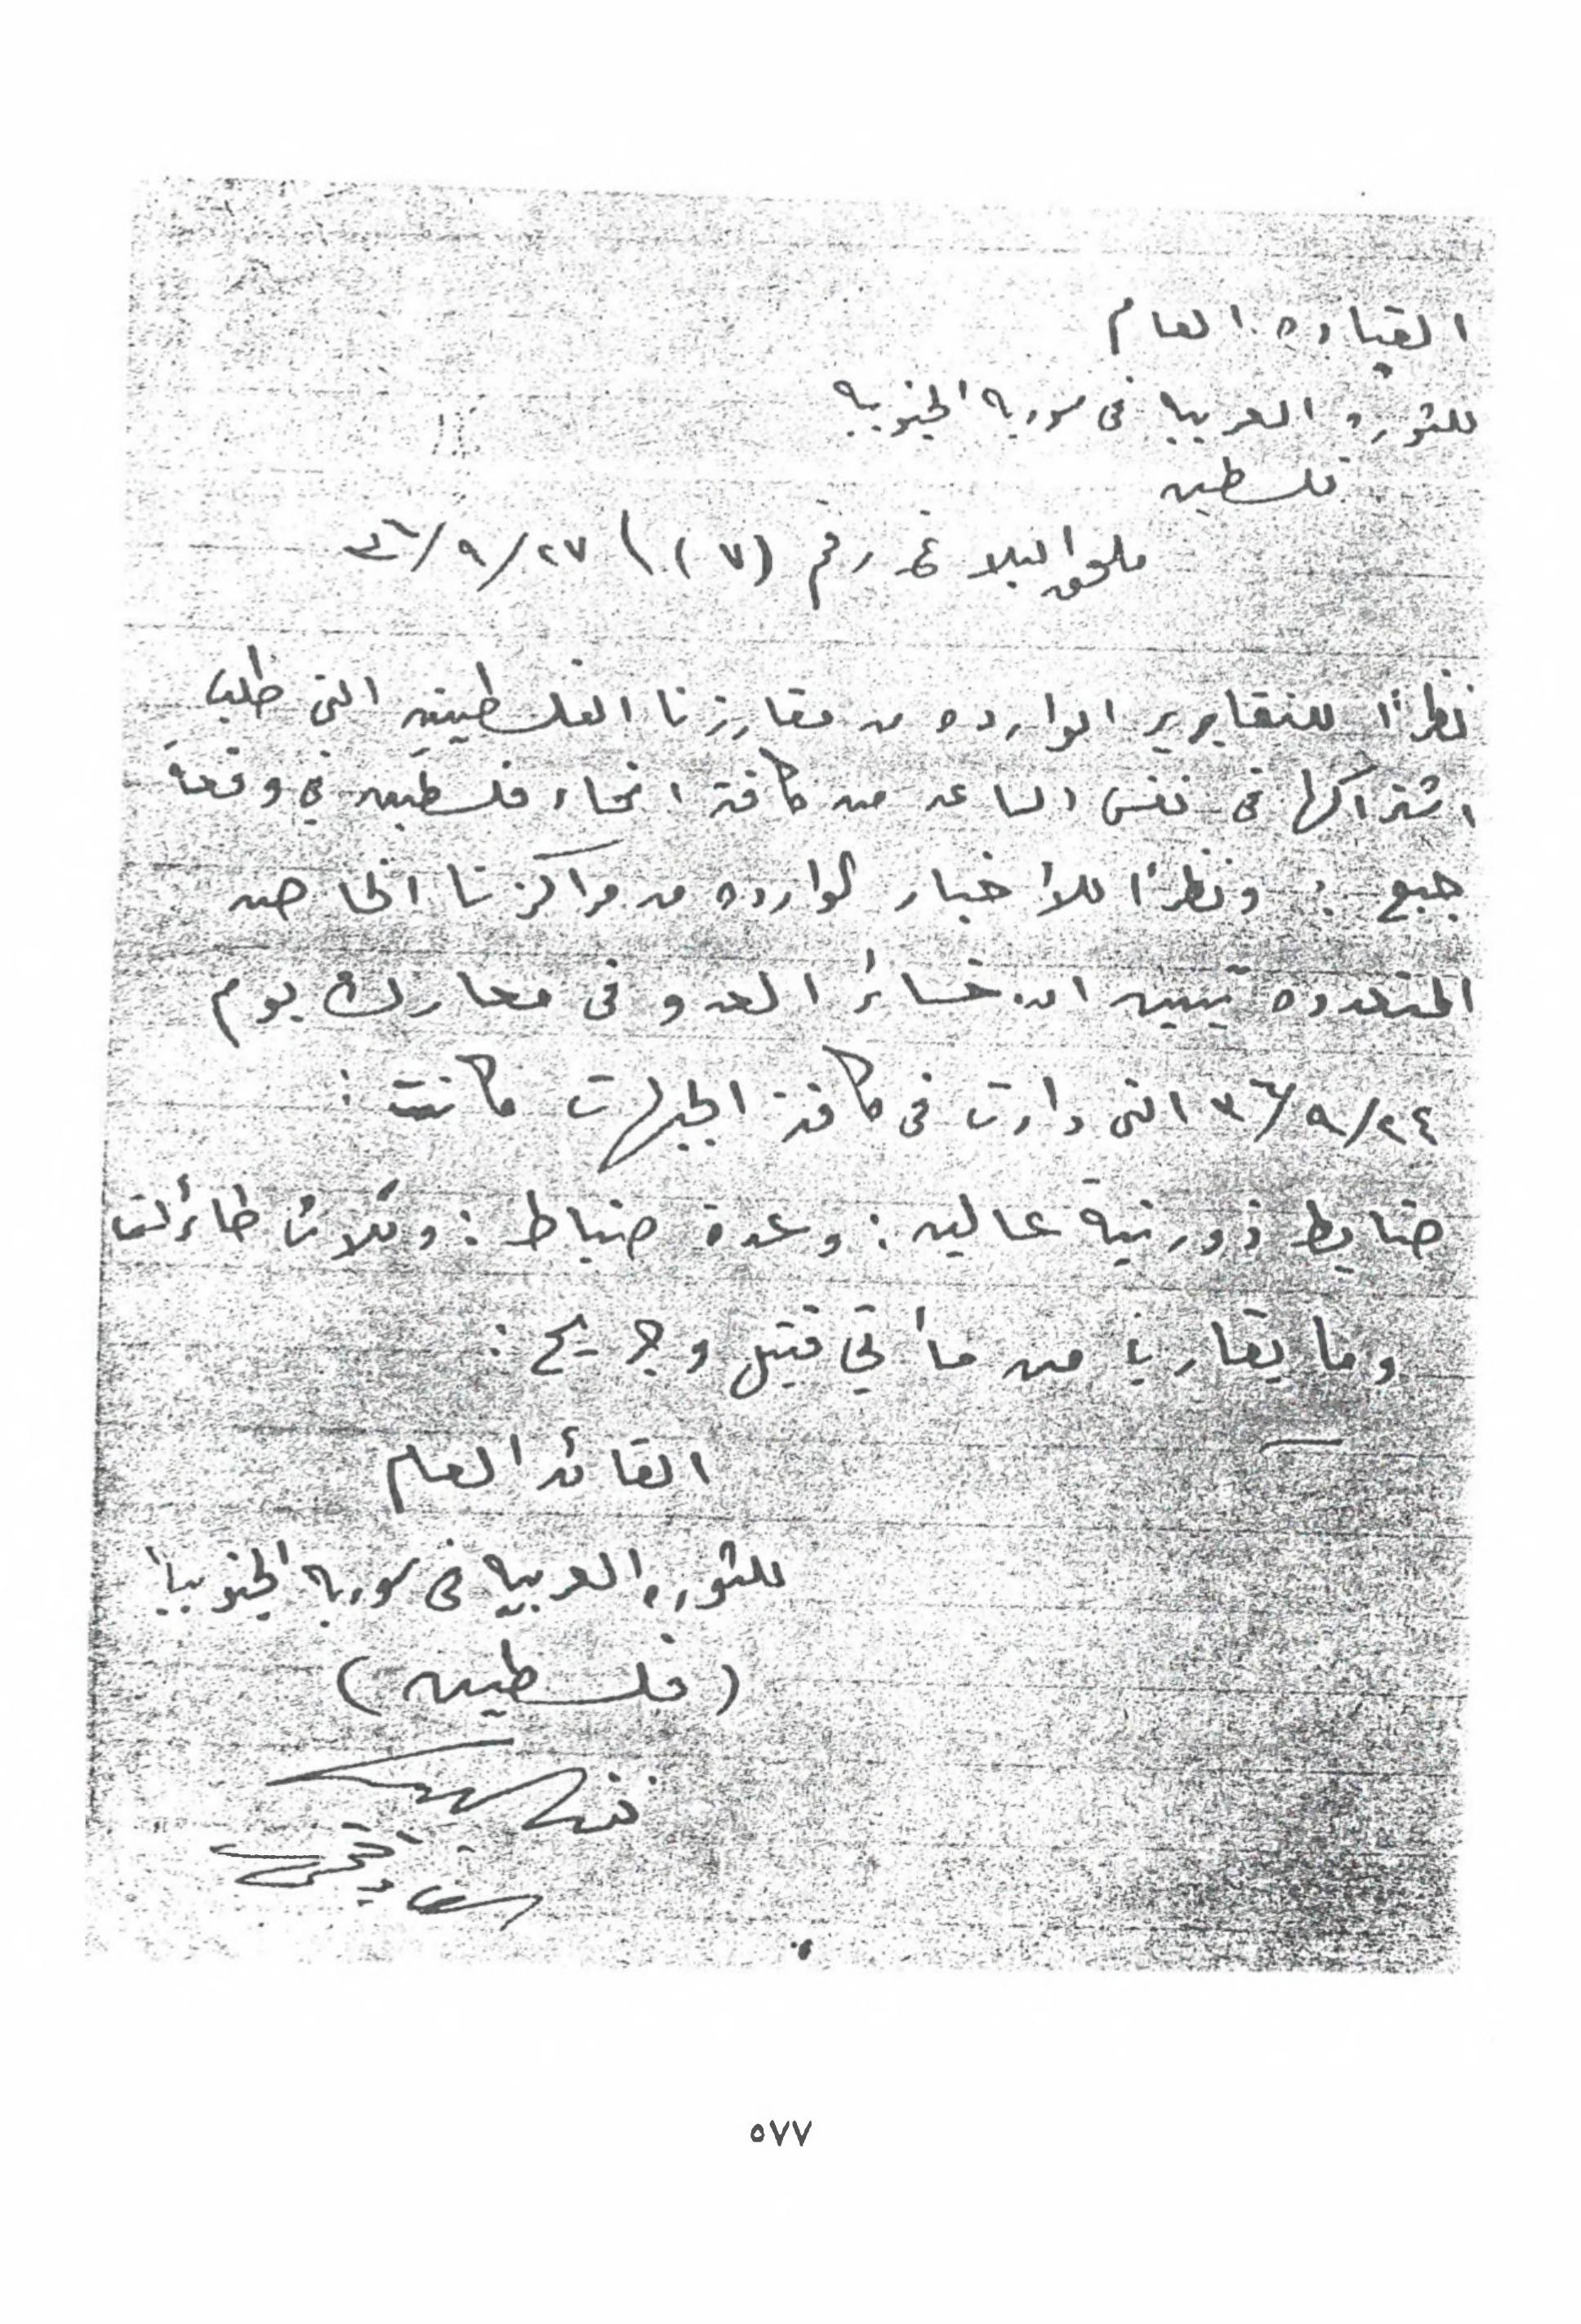 القياده العام
للثوره العربيه في سوريه الجنوبيه
فلسطين
ملحق البلاغ رقم (٧) \ ٢٧/٩/٣٦
نظراً للتقارير الوارده من مفارزنا الفلسطينيه التي طلب
اشتراكها في نفس الساعه من كافة انحاء فلسطين في وقعة
جبع : ونظراً للأخبار الوارده من مراكزنا الخاصه
المتعدده تبين ان خسائر العدو في معارك يوم
٢٤/٩/٣٦ التي دارت في كافة الجبهات كانت :
ضابط ذو رتبة عاليه : وعدة ضباط : وثلاث طائرات
وما يقارب من مأتي قتيل وجريح :
القائد العام
للثوره العربيه في سوريه الجنوبيه
(فلسطين)
٥٧٧